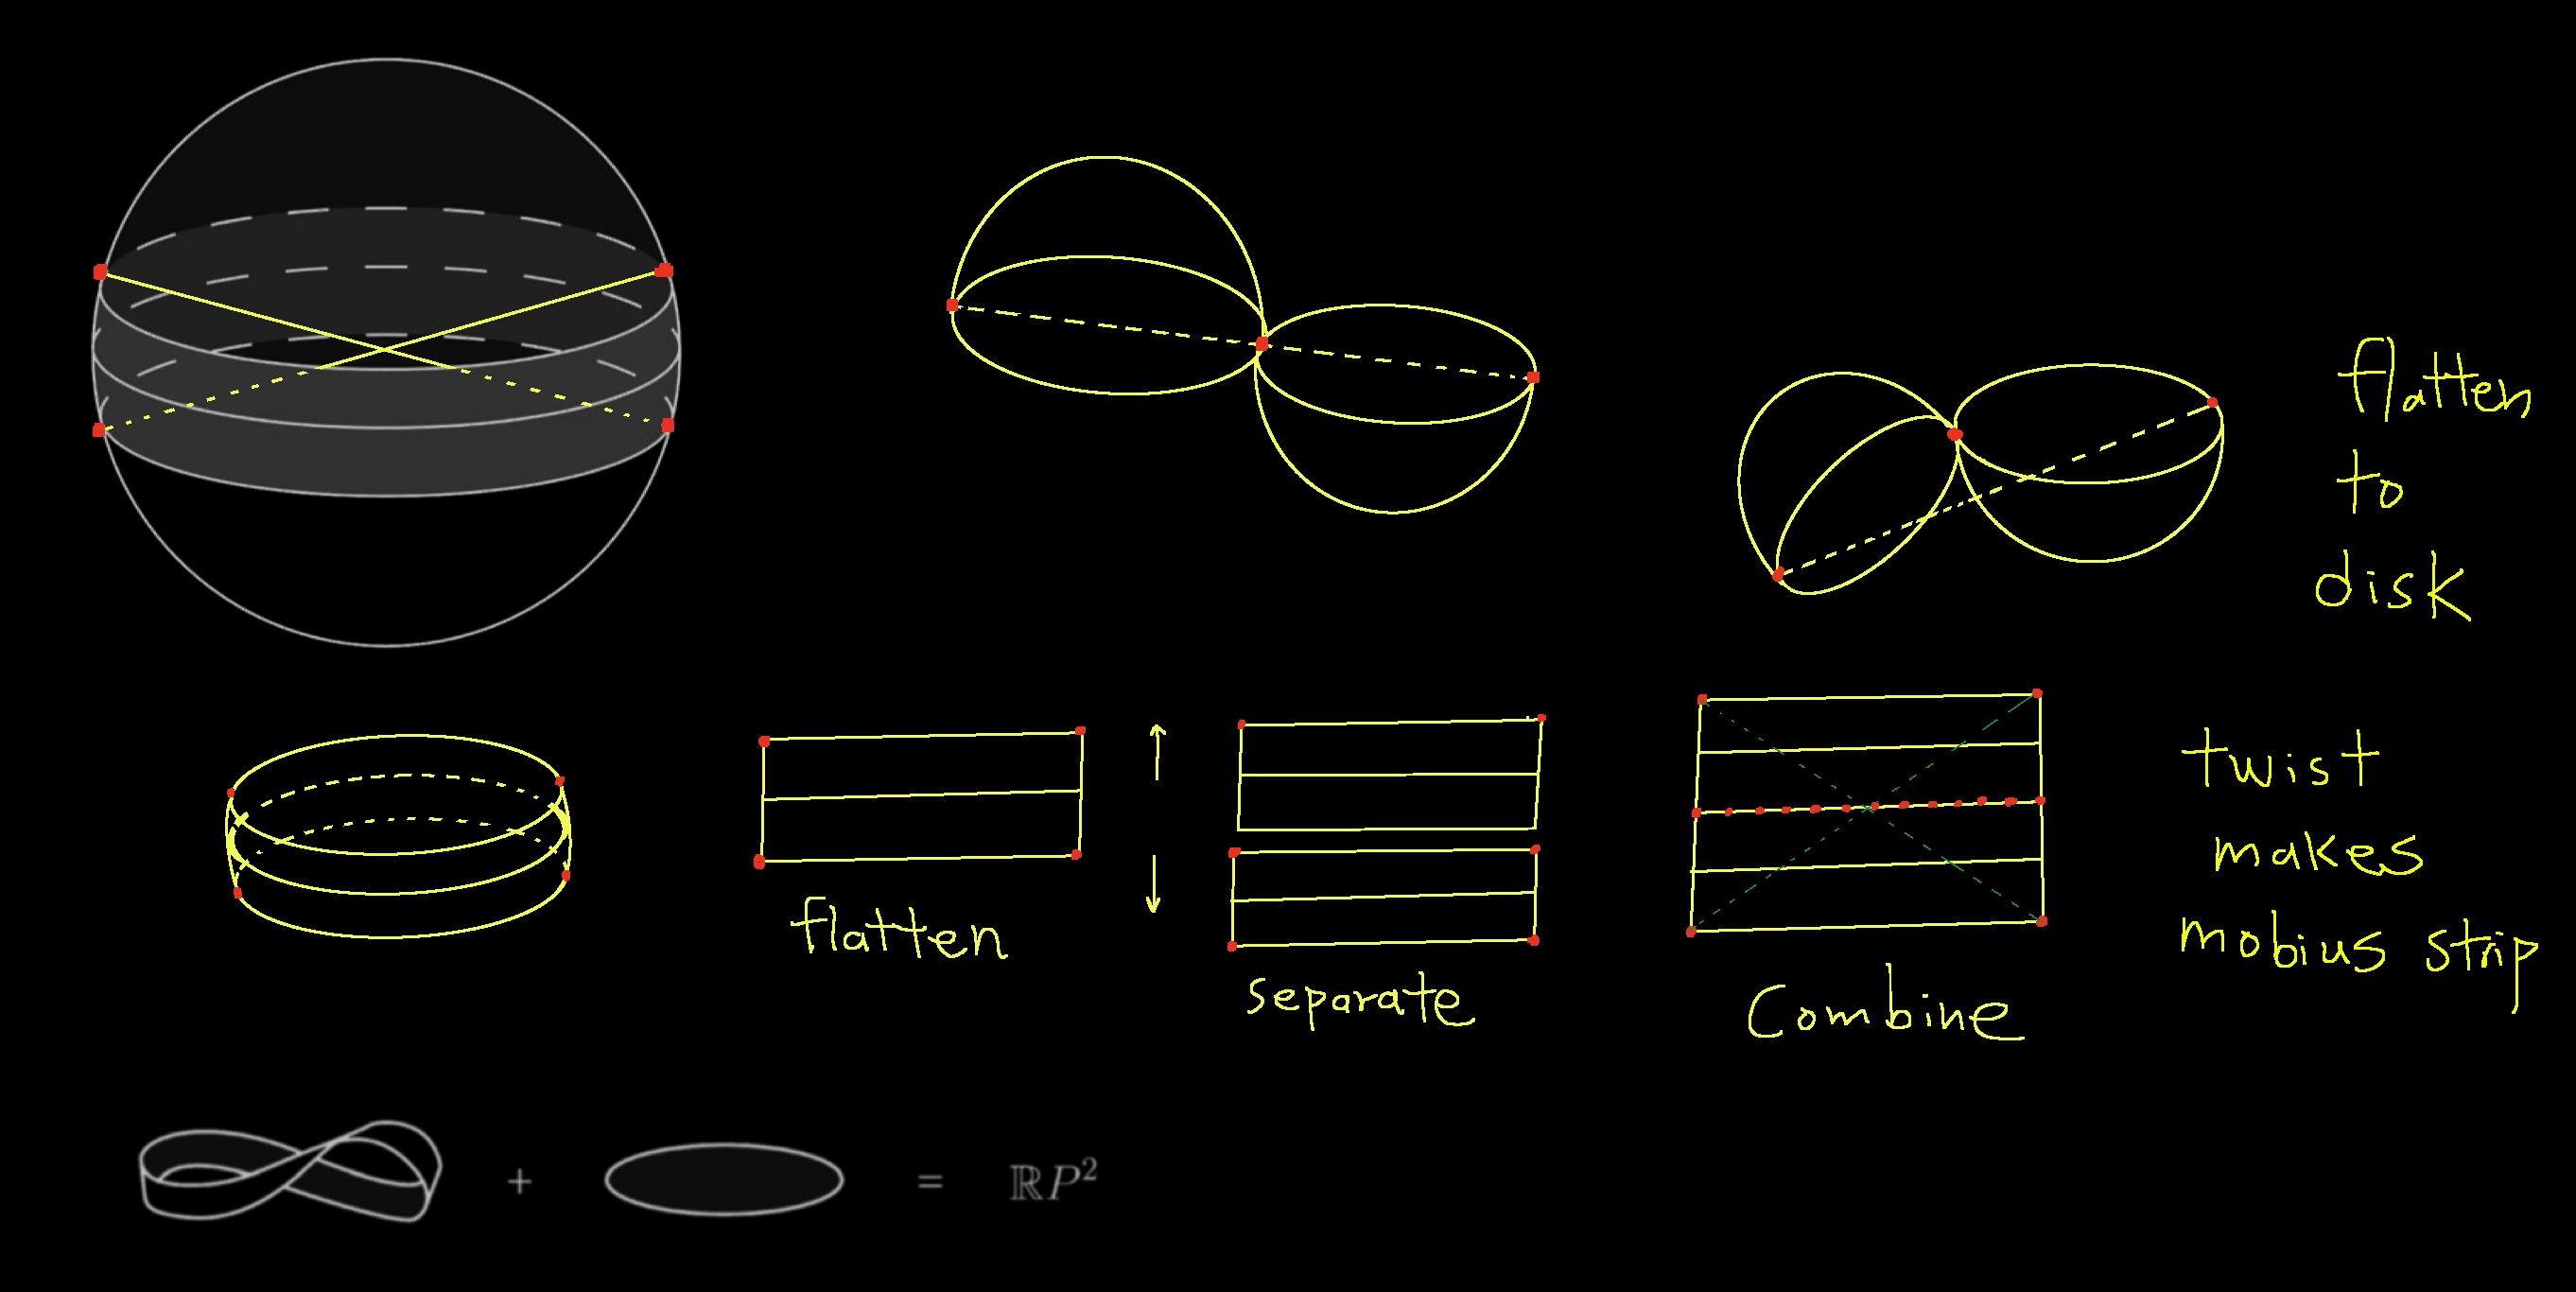 flatten
to
disk
flatten
separate
Combine
twist
makes
mobius strip
+ = ℝP²